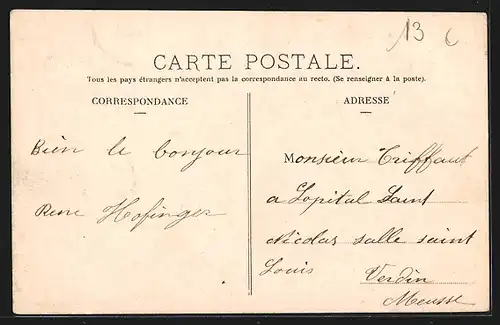 13 c
CARTE POSTALE.
Tous les pays étrangers n'acceptent pas la correspondance au recto. (Se renseigner à la poste).
CORRESPONDANCE
ADRESSE
Bien le bonjour
Rene Hofinger
Monsieur Triffaut
a Lopital Saint
Nicolas salle saint
Louis
Verdin
Meusse